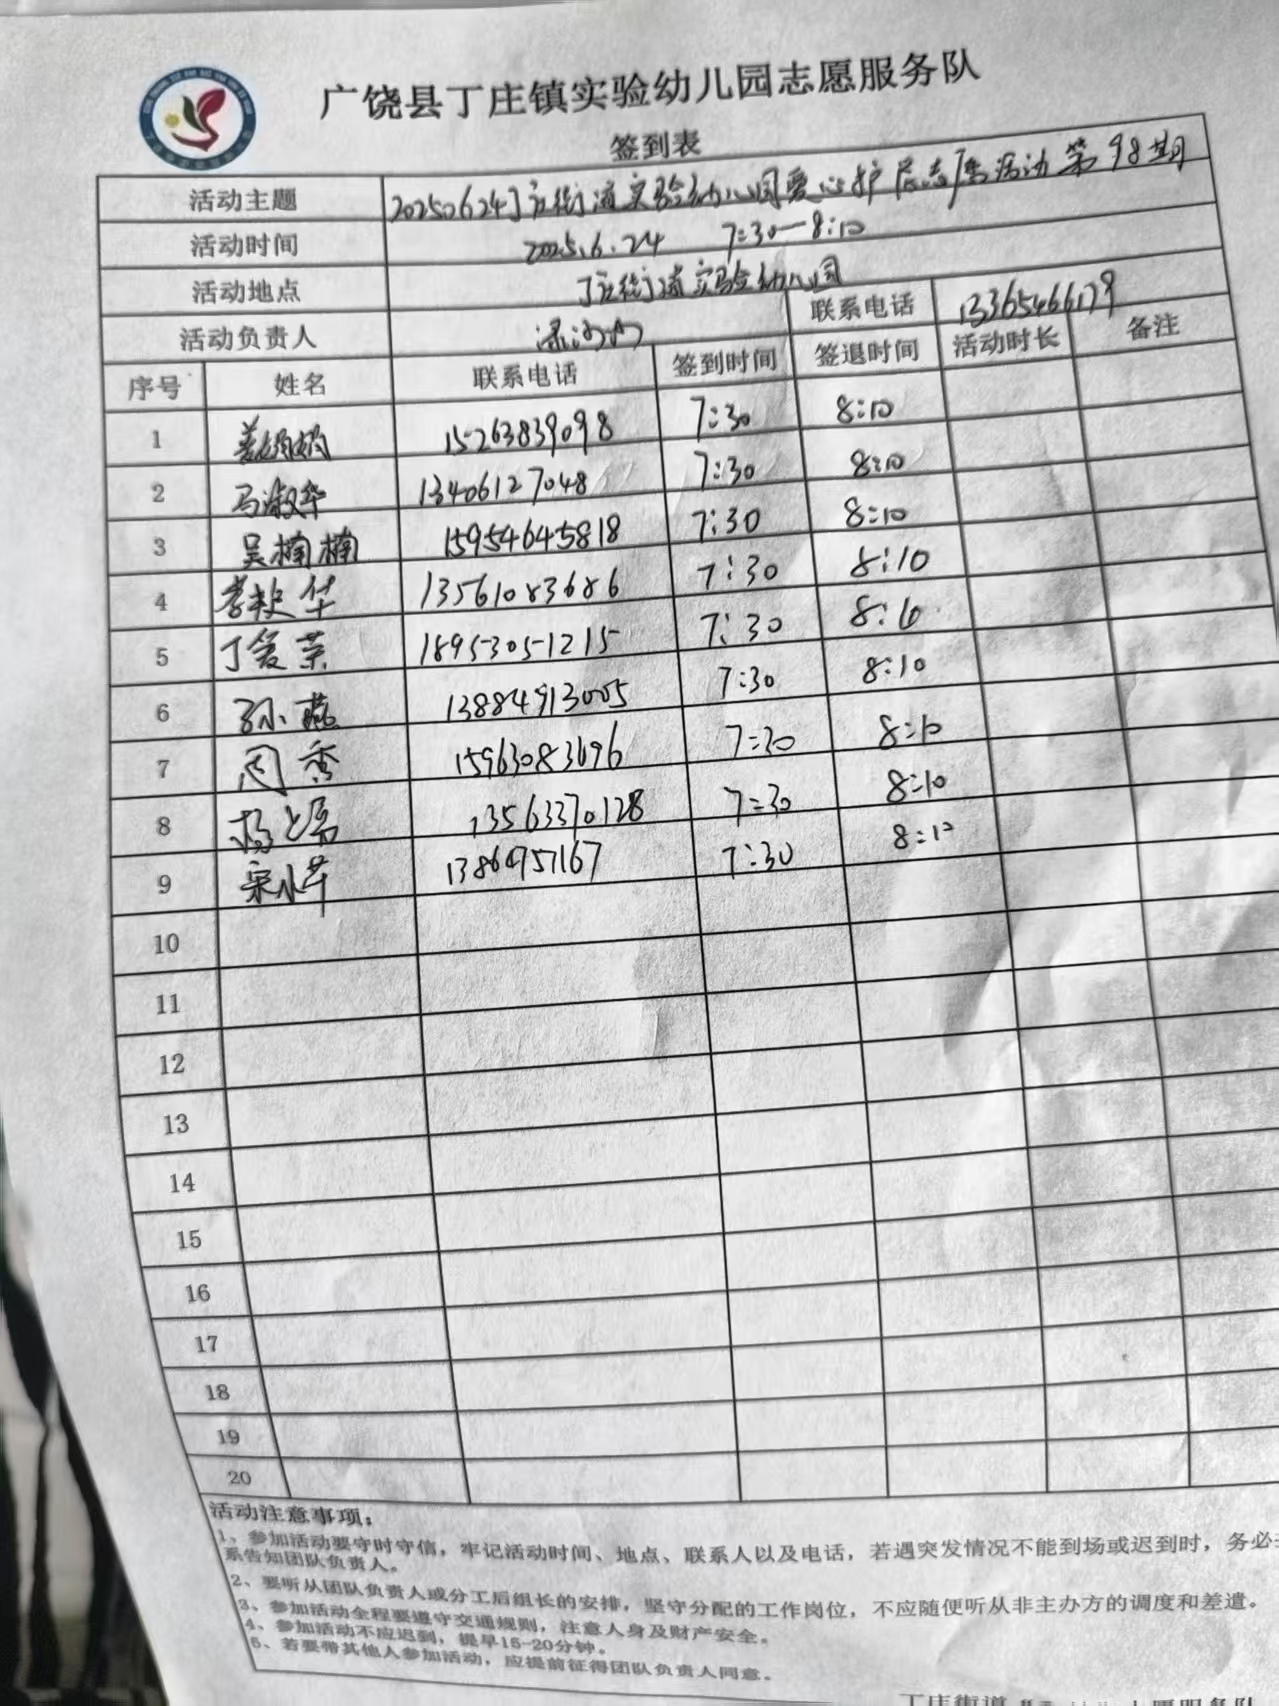 广饶县丁庄镇实验幼儿园志愿服务队
签到表
活动主题 20250624丁庄街道实验幼儿园爱心护居志愿活动第98期
活动时间 2025.6.24 7:30—8:10
活动地点 丁庄街道实验幼儿园
活动负责人 联系电话 13365466179
序号 姓名 联系电话 签到时间 签退时间 活动时长 备注
1 15263839098 7:30 8:10
2 马淑华 13406127048 7:30 8:10
3 吴楠楠 15954645818 7:30 8:10
4 李秋华 13561083686 7:30 8:10
5 丁爱荣 18953051215 7:30 8:10
6 孙燕 13884913005 7:30 8:10
7 周香 15963083696 7:30 8:10
8 13563370128 7:30 8:10
9 宋小芹 13864957167 7:30 8:10
10
11
12
13
14
15
16
17
18
19
20
活动注意事项：
1、参加活动要守时守信，牢记活动时间、地点、联系人以及电话，若遇突发情况不能到场或迟到时，务必
系告知团队负责人。
2、要听从团队负责人或分工后组长的安排，坚守分配的工作岗位，不应随便听从非主办方的调度和差遣。
3、参加活动全程要遵守交通规则，注意人身及财产安全。
4、参加活动不应迟到，提早15-20分钟。
5、若要带其他人参加活动，应提前征得团队负责人同意。
丁庄街道